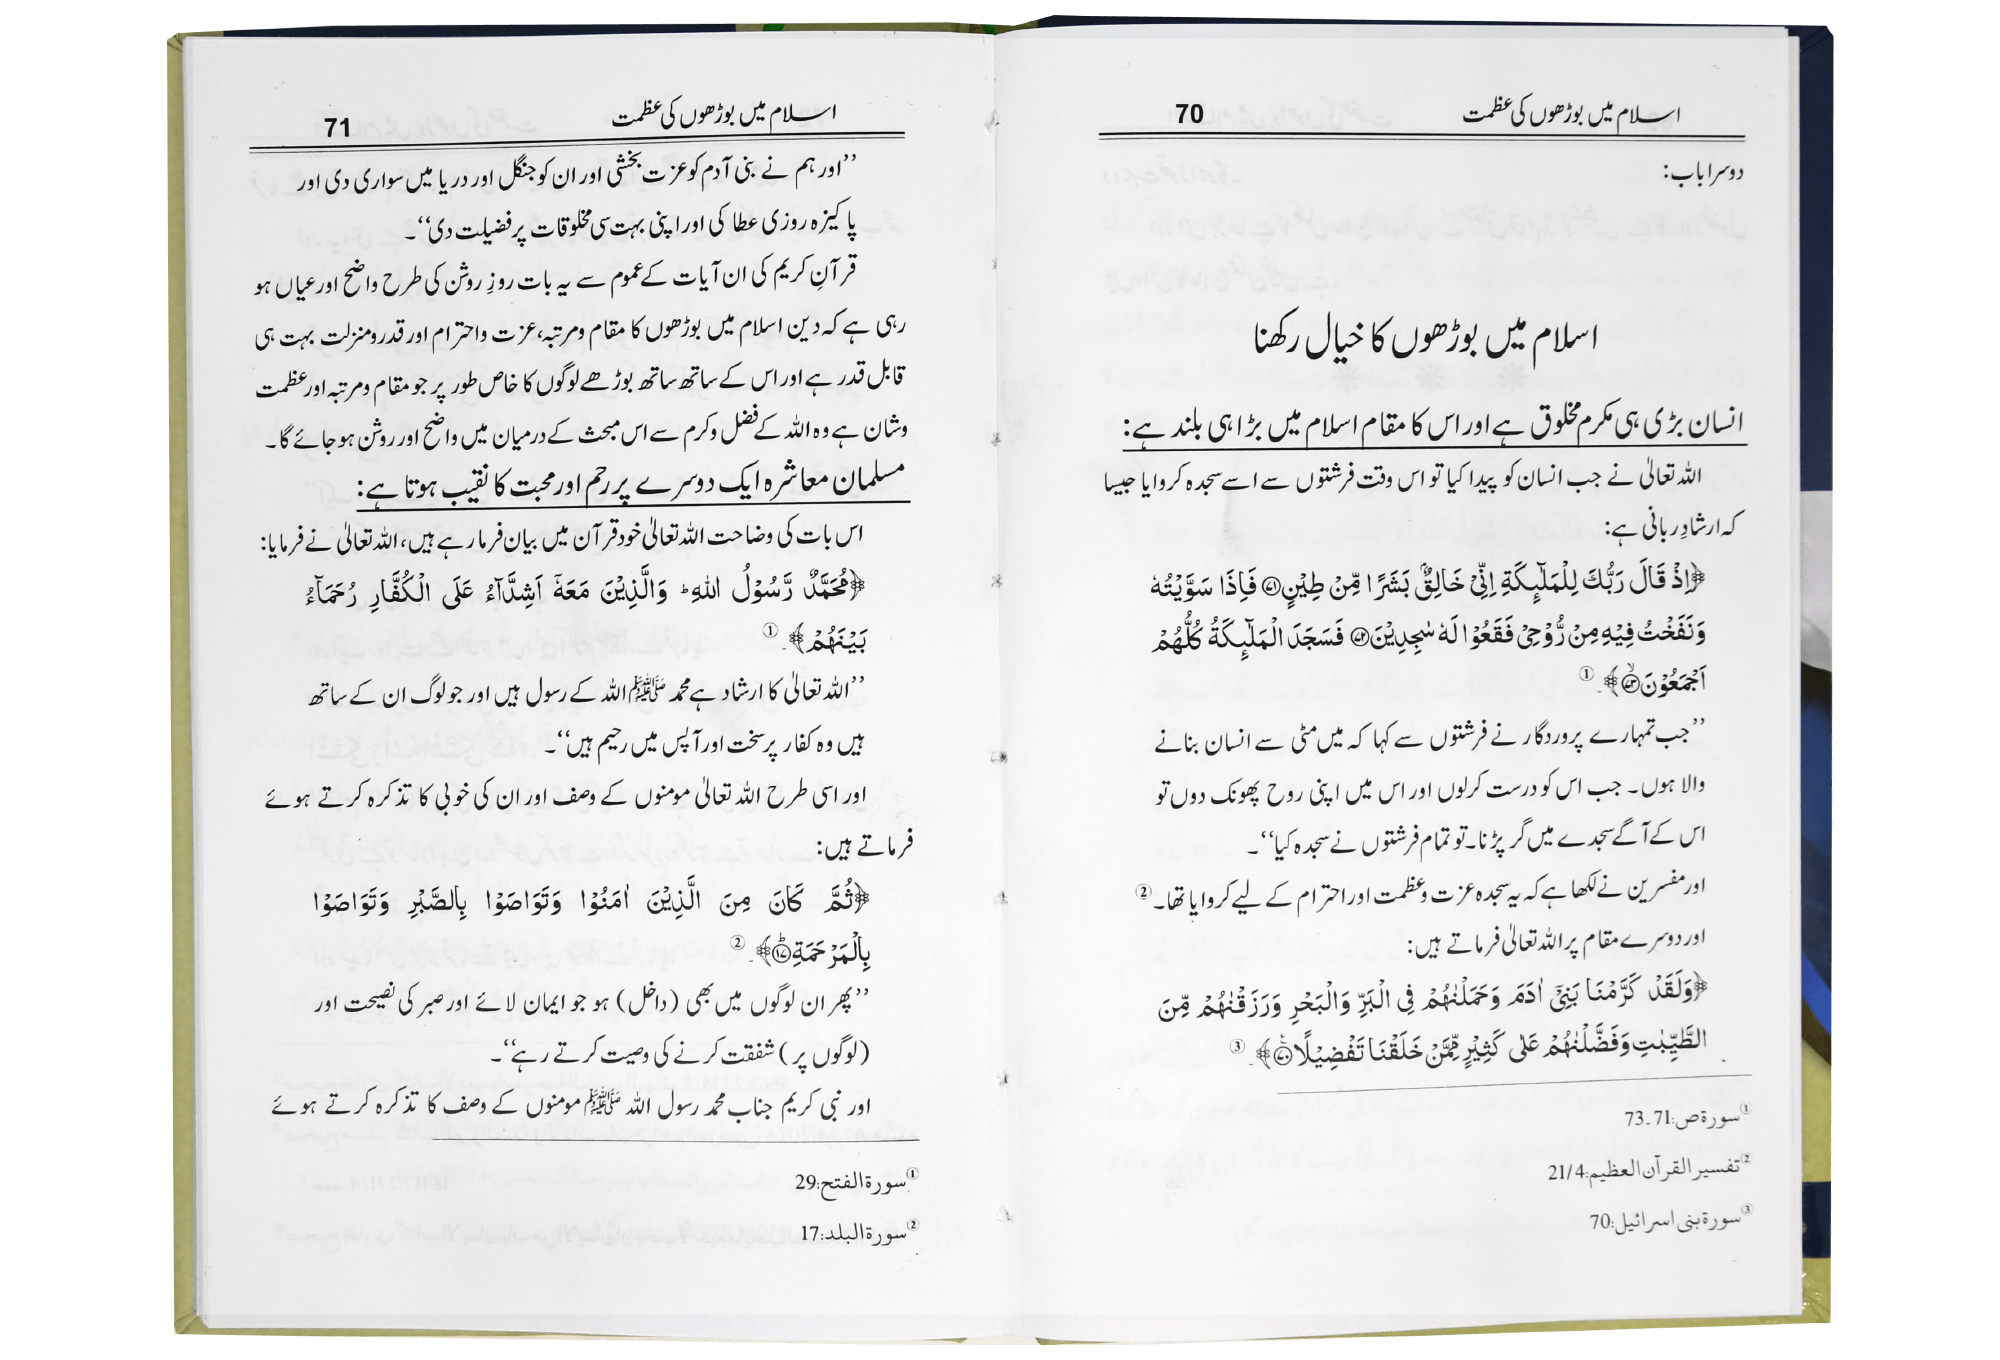 اسلام میں بوڑھوں کی عظمت 70
دوسرا باب:
اسلام میں بوڑھوں کا خیال رکھنا
انسان بڑی ہی مکرم مخلوق ہے اور اس کا مقام اسلام میں بڑا ہی بلند ہے:
اللہ تعالیٰ نے جب انسان کو پیدا کیا تو اس وقت فرشتوں سے اسے سجدہ کروایا جیسا
کہ ارشادِ ربانی ہے:
﴿اِذْ قَالَ رَبُّكَ لِلْمَلٰٓىِٕكَةِ اِنِّیْ خَالِقٌۢ بَشَرًا مِّنْ طِیْنٍ۝۷۱ فَاِذَا سَوَّیْتُهٗ
وَ نَفَخْتُ فِیْهِ مِنْ رُّوْحِیْ فَقَعُوْا لَهٗ سٰجِدِیْنَ۝۷۲ فَسَجَدَ الْمَلٰٓىِٕكَةُ كُلُّهُمْ
اَجْمَعُوْنَۙ۝۷۳﴾۔ ①
’’جب تمہارے پروردگار نے فرشتوں سے کہا کہ میں مٹی سے انسان بنانے
والا ہوں۔ جب اس کو درست کرلوں اور اس میں اپنی روح پھونک دوں تو
اس کے آگے سجدے میں گر پڑنا۔ تو تمام فرشتوں نے سجدہ کیا‘‘۔
اور مفسرین نے لکھا ہے کہ یہ سجدہ عزت و عظمت اور احترام کے لیے کروایا تھا۔ ②
اور دوسرے مقام پر اللہ تعالیٰ فرماتے ہیں:
﴿وَلَقَدْ كَرَّمْنَا بَنِیْۤ اٰدَمَ وَحَمَلْنٰهُمْ فِی الْبَرِّ وَالْبَحْرِ وَرَزَقْنٰهُمْ مِّنَ
الطَّیِّبٰتِ وَفَضَّلْنٰهُمْ عَلٰی كَثِیْرٍ مِّمَّنْ خَلَقْنَا تَفْضِیْلًا۠۝۷۰﴾۔ ③
① سورة ص:71۔73
② تفسیر القرآن العظیم:21/4
③ سورة بنی اسرائیل:70
اسلام میں بوڑھوں کی عظمت 71
’’اور ہم نے بنی آدم کو عزت بخشی اور ان کو جنگل اور دریا میں سواری دی اور
پاکیزہ روزی عطا کی اور اپنی بہت سی مخلوقات پر فضیلت دی‘‘۔
قرآنِ کریم کی ان آیات کے عموم سے یہ بات روزِ روشن کی طرح واضح اور عیاں ہو
رہی ہے کہ دین اسلام میں بوڑھوں کا مقام و مرتبہ، عزت واحترام اور قدر و منزلت بہت ہی
قابل قدر ہے اور اس کے ساتھ ساتھ بوڑھے لوگوں کا خاص طور پر جو مقام و مرتبہ اور عظمت
و شان ہے وہ اللہ کے فضل و کرم سے اس مبحث کے درمیان میں واضح اور روشن ہو جائے گا۔
مسلمان معاشرہ ایک دوسرے پر رحم اور محبت کا نقیب ہوتا ہے:
اس بات کی وضاحت اللہ تعالیٰ خود قرآن میں بیان فرما رہے ہیں، اللہ تعالیٰ نے فرمایا:
﴿مُحَمَّدٌ رَّسُوْلُ اللّٰهِؕ وَالَّذِیْنَ مَعَهٗۤ اَشِدَّآءُ عَلَی الْكُفَّارِ رُحَمَآءُ
بَیْنَهُمْ﴾۔ ①
’’اللہ تعالیٰ کا ارشاد ہے محمد ﷺ اللہ کے رسول ہیں اور جو لوگ ان کے ساتھ
ہیں وہ کفار پر سخت اور آپس میں رحیم ہیں‘‘۔
اور اسی طرح اللہ تعالیٰ مومنوں کے وصف اور ان کی خوبی کا تذکرہ کرتے ہوئے
فرماتے ہیں:
﴿ثُمَّ كَانَ مِنَ الَّذِیْنَ اٰمَنُوْا وَتَوَاصَوْا بِالصَّبْرِ وَتَوَاصَوْا
بِالْمَرْحَمَةِؕ۝۱۷﴾۔ ②
’’پھر ان لوگوں میں بھی (داخل) ہو جو ایمان لائے اور صبر کی نصیحت اور
(لوگوں پر) شفقت کرنے کی وصیت کرتے رہے‘‘۔
اور نبی کریم جناب محمد رسول اللہ ﷺ مومنوں کے وصف کا تذکرہ کرتے ہوئے
① سورة الفتح:29
② سورة البلد:17